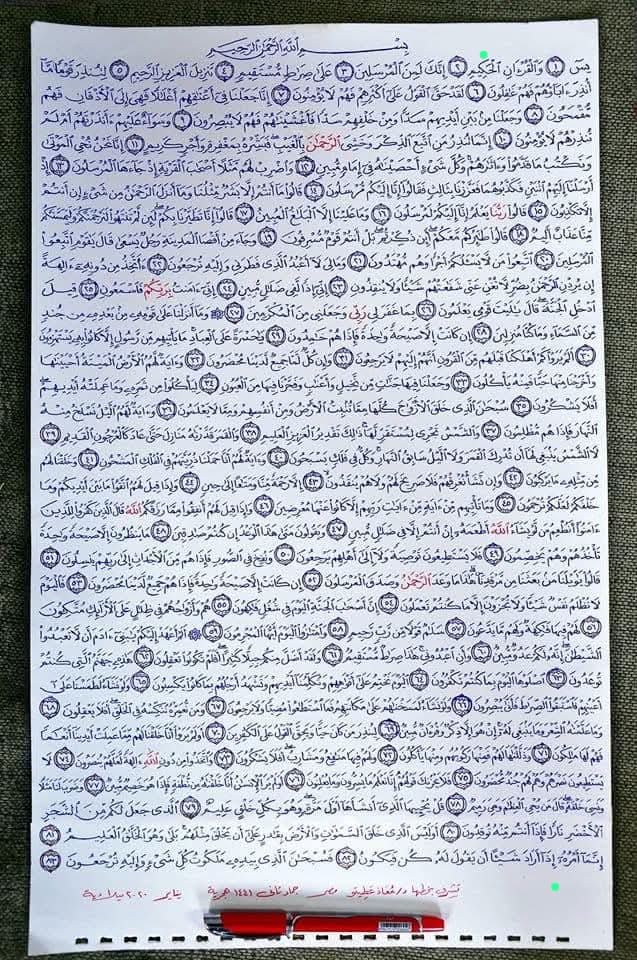 بسم الله الرحمن الرحيم
يس ١ والقرءان الحكيم ٢ إنك لمن المرسلين ٣ على صرط مستقيم ٤ تنزيل العزيز الرحيم ٥ لتنذر قوما ما
أنذر ءاباؤهم فهم غفلون ٦ لقد حق القول على أكثرهم فهم لا يؤمنون ٧ إنا جعلنا فى أعنقهم أغللا فهى إلى الأذقان فهم
مقمحون ٨ وجعلنا من بين أيديهم سدا ومن خلفهم سدا فأغشينهم فهم لا يبصرون ٩ وسواء عليهم ءأنذرتهم أم لم
تنذرهم لا يؤمنون ١٠ إنما تنذر من اتبع الذكر وخشى الرحمن بالغيب فبشره بمغفرة وأجر كريم ١١ إنا نحن نحى الموتى
ونكتب ما قدموا وءاثرهم وكل شىء أحصينه فى إمام مبين ١٢ واضرب لهم مثلا أصحب القرية إذ جاءها المرسلون ١٣ إذ
أرسلنا إليهم اثنين فكذبوهما فعززنا بثالث فقالوا إنا إليكم مرسلون ١٤ قالوا ما أنتم إلا بشر مثلنا وما أنزل الرحمن من شىء إن أنتم
إلا تكذبون ١٥ قالوا ربنا يعلم إنا إليكم لمرسلون ١٦ وما علينا إلا البلغ المبين ١٧ قالوا إنا تطيرنا بكم لئن لم تنتهوا لنرجمنكم وليمسنكم
منا عذاب أليم ١٨ قالوا طئركم معكم أئن ذكرتم بل أنتم قوم مسرفون ١٩ وجاء من أقصا المدينة رجل يسعى قال يقوم اتبعوا
المرسلين ٢٠ اتبعوا من لا يسئلكم أجرا وهم مهتدون ٢١ وما لى لا أعبد الذى فطرنى وإليه ترجعون ٢٢ ءأتخذ من دونه ءالهة
إن يردن الرحمن بضر لا تغن عنى شفعتهم شيئا ولا ينقذون ٢٣ إنى إذا لفى ضلل مبين ٢٤ إنى ءامنت بربكم فاسمعون ٢٥ قيل
ادخل الجنة قال يليت قومى يعلمون ٢٦ بما غفر لى ربى وجعلنى من المكرمين ٢٧ وما أنزلنا على قومه من بعده من جند
من السماء وما كنا منزلين ٢٨ إن كانت إلا صيحة وحدة فإذا هم خمدون ٢٩ يحسرة على العباد ما يأتيهم من رسول إلا كانوا به يستهزءون
٣٠ ألم يروا كم أهلكنا قبلهم من القرون أنهم إليهم لا يرجعون ٣١ وإن كل لما جميع لدينا محضرون ٣٢ وءاية لهم الأرض الميتة أحيينها
وأخرجنا منها حبا فمنه يأكلون ٣٣ وجعلنا فيها جنت من نخيل وأعنب وفجرنا فيها من العيون ٣٤ ليأكلوا من ثمره وما عملته أيديهم
أفلا يشكرون ٣٥ سبحن الذى خلق الأزوج كلها مما تنبت الأرض ومن أنفسهم ومما لا يعلمون ٣٦ وءاية لهم اليل نسلخ منه
النهار فإذا هم مظلمون ٣٧ والشمس تجرى لمستقر لها ذلك تقدير العزيز العليم ٣٨ والقمر قدرنه منازل حتى عاد كالعرجون القديم ٣٩
لا الشمس ينبغى لها أن تدرك القمر ولا اليل سابق النهار وكل فى فلك يسبحون ٤٠ وءاية لهم أنا حملنا ذريتهم فى الفلك المشحون ٤١ وخلقنا لهم
من مثله ما يركبون ٤٢ وإن نشأ نغرقهم فلا صريخ لهم ولا هم ينقذون ٤٣ إلا رحمة منا ومتعا إلى حين ٤٤ وإذا قيل لهم اتقوا ما بين أيديكم وما
خلفكم لعلكم ترحمون ٤٥ وما تأتيهم من ءاية من ءايت ربهم إلا كانوا عنها معرضين ٤٦ وإذا قيل لهم أنفقوا مما رزقكم الله قال الذين كفروا للذين
ءامنوا أنطعم من لو يشاء الله أطعمه إن أنتم إلا فى ضلل مبين ٤٧ ويقولون متى هذا الوعد إن كنتم صدقين ٤٨ ما ينظرون إلا صيحة وحدة
تأخذهم وهم يخصمون ٤٩ فلا يستطيعون توصية ولا إلى أهلهم يرجعون ٥٠ ونفخ فى الصور فإذا هم من الأجداث إلى ربهم ينسلون ٥١
قالوا يويلنا من بعثنا من مرقدنا هذا ما وعد الرحمن وصدق المرسلون ٥٢ إن كانت إلا صيحة وحدة فإذا هم جميع لدينا محضرون ٥٣ فاليوم
لا تظلم نفس شيئا ولا تجزون إلا ما كنتم تعملون ٥٤ إن أصحب الجنة اليوم فى شغل فكهون ٥٥ هم وأزوجهم فى ظلل على الأرائك متكءون
٥٦ لهم فيها فكهة ولهم ما يدعون ٥٧ سلم قولا من رب رحيم ٥٨ وامتزوا اليوم أيها المجرمون ٥٩ ألم أعهد إليكم يبنى ءادم أن لا تعبدوا
الشيطن إنه لكم عدو مبين ٦٠ وأن اعبدونى هذا صرط مستقيم ٦١ ولقد أضل منكم جبلا كثيرا أفلم تكونوا تعقلون ٦٢ هذه جهنم التى كنتم
توعدون ٦٣ اصلوها اليوم بما كنتم تكفرون ٦٤ اليوم نختم على أفوههم وتكلمنا أيديهم وتشهد أرجلهم بما كانوا يكسبون ٦٥ ولو نشاء لطمسنا على
أعينهم فاستبقوا الصرط فأنى يبصرون ٦٦ ولو نشاء لمسخنهم على مكانتهم فما استطعوا مضيا ولا يرجعون ٦٧ ومن نعمره ننكسه فى الخلق أفلا يعقلون ٦٨
وما علمنه الشعر وما ينبغى له إن هو إلا ذكر وقرءان مبين ٦٩ لينذر من كان حيا ويحق القول على الكفرين ٧٠ أولم يروا أنا خلقنا لهم مما عملت أيدينا أنعما
فهم لها ملكون ٧١ وذللنها لهم فمنها ركوبهم ومنها يأكلون ٧٢ ولهم فيها منفع ومشارب أفلا يشكرون ٧٣ واتخذوا من دون الله ءالهة لعلهم ينصرون ٧٤ لا
يستطيعون نصرهم وهم لهم جند محضرون ٧٥ فلا يحزنك قولهم إنا نعلم ما يسرون وما يعلنون ٧٦ أولم ير الإنسن أنا خلقنه من نطفة فإذا هو خصيم مبين ٧٧ وضرب لنا مثلا
ونسى خلقه قال من يحى العظم وهى رميم ٧٨ قل يحييها الذى أنشأها أول مرة وهو بكل خلق عليم ٧٩ الذى جعل لكم من الشجر
الأخضر نارا فإذا أنتم منه توقدون ٨٠ أوليس الذى خلق السموت والأرض بقدر على أن يخلق مثلهم بلى وهو الخلق العليم ٨١
إنما أمره إذا أراد شيئا أن يقول له كن فيكون ٨٢ فسبحن الذى بيده ملكوت كل شىء وإليه ترجعون ٨٣
تشرف بخطها د/ معاذ مصر جمادى ثانى ١٤٤١ هجرية يناير ٢٠٢٠ ميلادية